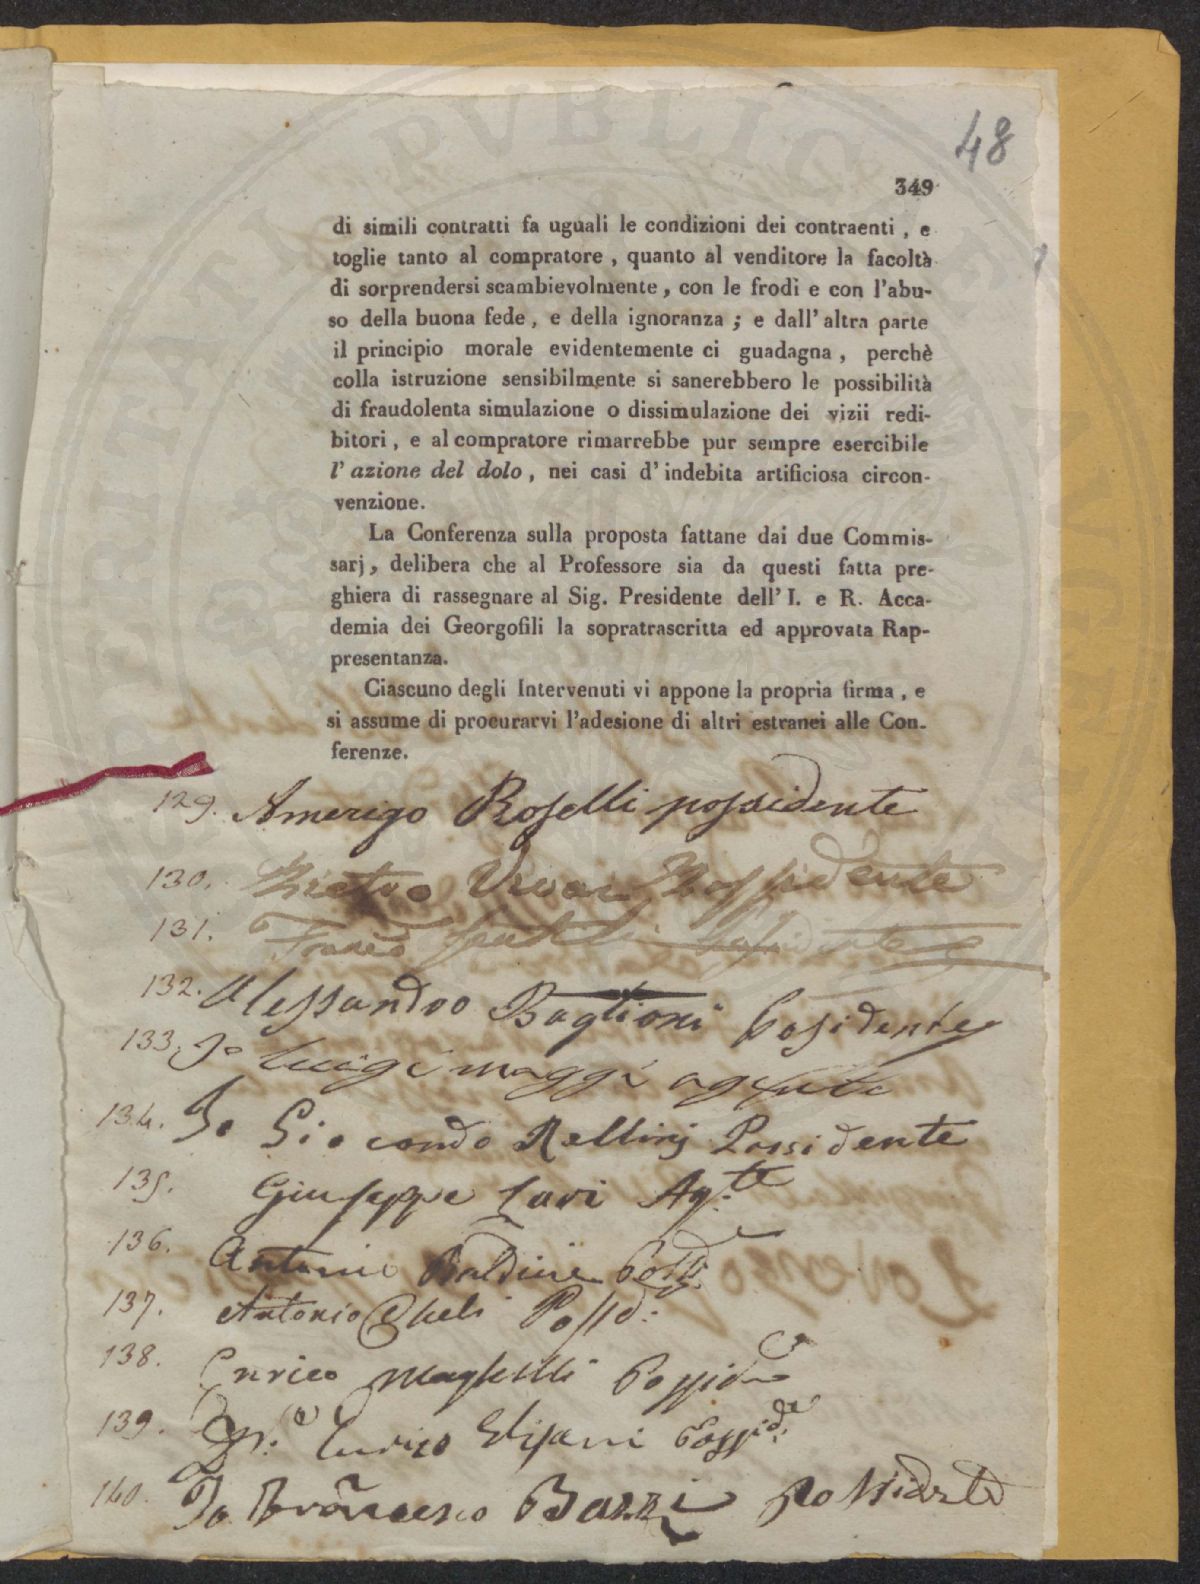 48
349
di simili contratti fa uguali le condizioni dei contraenti , e
toglie tanto al compratore , quanto al venditore la facoltà
di sorprendersi scambievolmente , con le frodi e con l'abu-
so della buona fede , e della ignoranza ; e dall' altra parte
il principio morale evidentemente ci guadagna , perchè
colla istruzione sensibilmente si sanerebbero le possibilità
di fraudolenta simulazione o dissimulazione dei vizii redi-
bitori , e al compratore rimarrebbe pur sempre esercibile
l' azione del dolo , nei casi d' indebita artificiosa circon-
venzione.
La Conferenza sulla proposta fattane dai due Commis-
sarj , delibera che al Professore sia da questi fatta pre-
ghiera di rassegnare al Sig. Presidente dell' I. e R. Acca-
demia dei Georgofili la sopratrascritta ed approvata Rap-
presentanza.
Ciascuno degli Intervenuti vi appone la propria firma , e
si assume di procurarvi l'adesione di altri estranei alle Con-
ferenze.
129. Amerigo Roselli possidente
130. Pietro Possidente
131. Franco
132. Alessandro Baglioni Posidente
133. Io Luigi maggi agente
134. Io Giocondo Rellinj Possidente
135. Giuseppe Lari Ag.te
136. Antonio Baldini
137. Antonio Cheli Possd:
138. Enrico
139. Enrico
140. Io Francesco Bazzi Possidente